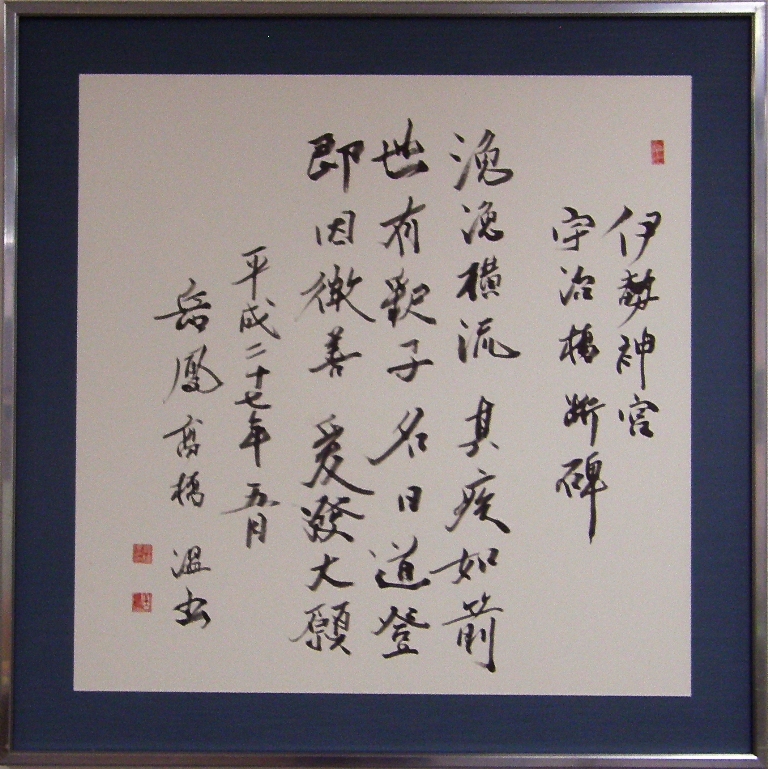 伊勢神宮
宇治橋断碑
浼浼横流 其疾如箭
世有釈子 名曰道登
即因微善 爰発大願
平成二十七年五月
岳鳳 高橋 温書